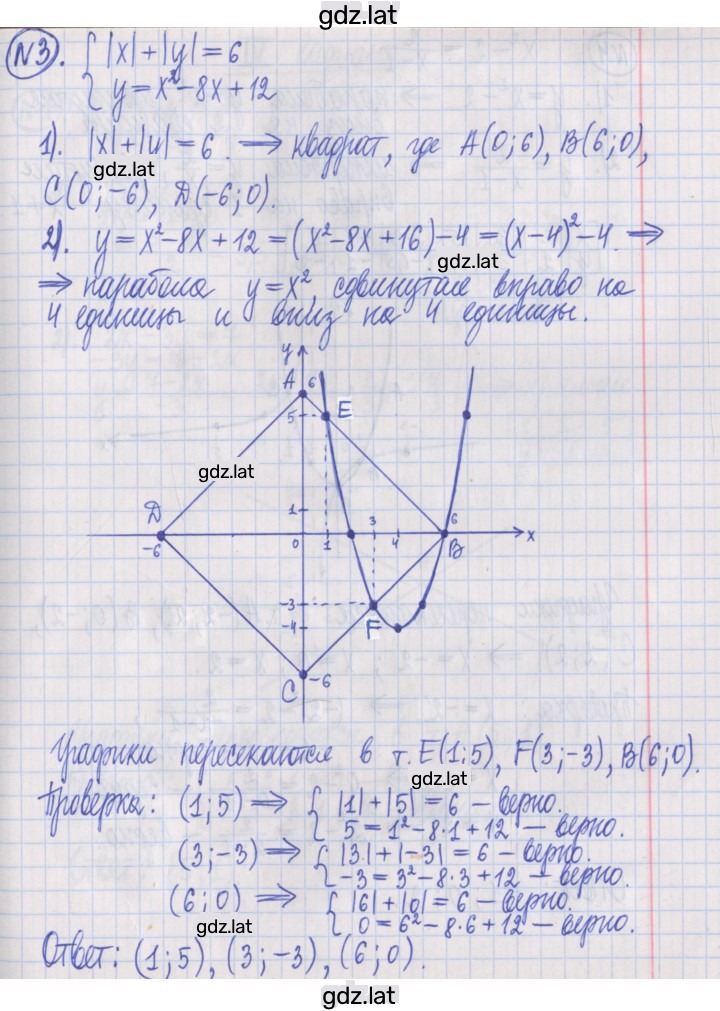 gdz.lat
N3. { |x|+|y|=6
y=x²-8x+12
1). |x|+|y|=6 ⟹ квадрат, где A(0;6), B(6;0),
gdz.lat
C(0;-6), D(-6;0).
2). y=x²-8x+12=(x²-8x+16)-4=(x-4)²-4. ⟹
gdz.lat
⟹ парабола y=x², сдвинутая вправо на
4 единицы и вниз на 4 единицы.
y
A 6
5 E
gdz.lat
D 1 3 6
-6 0 1 4 B x
-3
F
-4
C -6
Графики пересекаются в т. E(1;5), F(3;-3), B(6;0).
gdz.lat
Проверка: (1;5) ⟹ { |1|+|5|=6 – верно.
5=1²-8·1+12 – верно.
(3;-3) ⟹ { |3|+|-3|=6 – верно.
-3=3²-8·3+12 – верно.
(6;0) ⟹ { |6|+|0|=6 – верно.
0=6²-8·6+12 – верно.
gdz.lat
Ответ: (1;5), (3;-3), (6;0).
gdz.lat